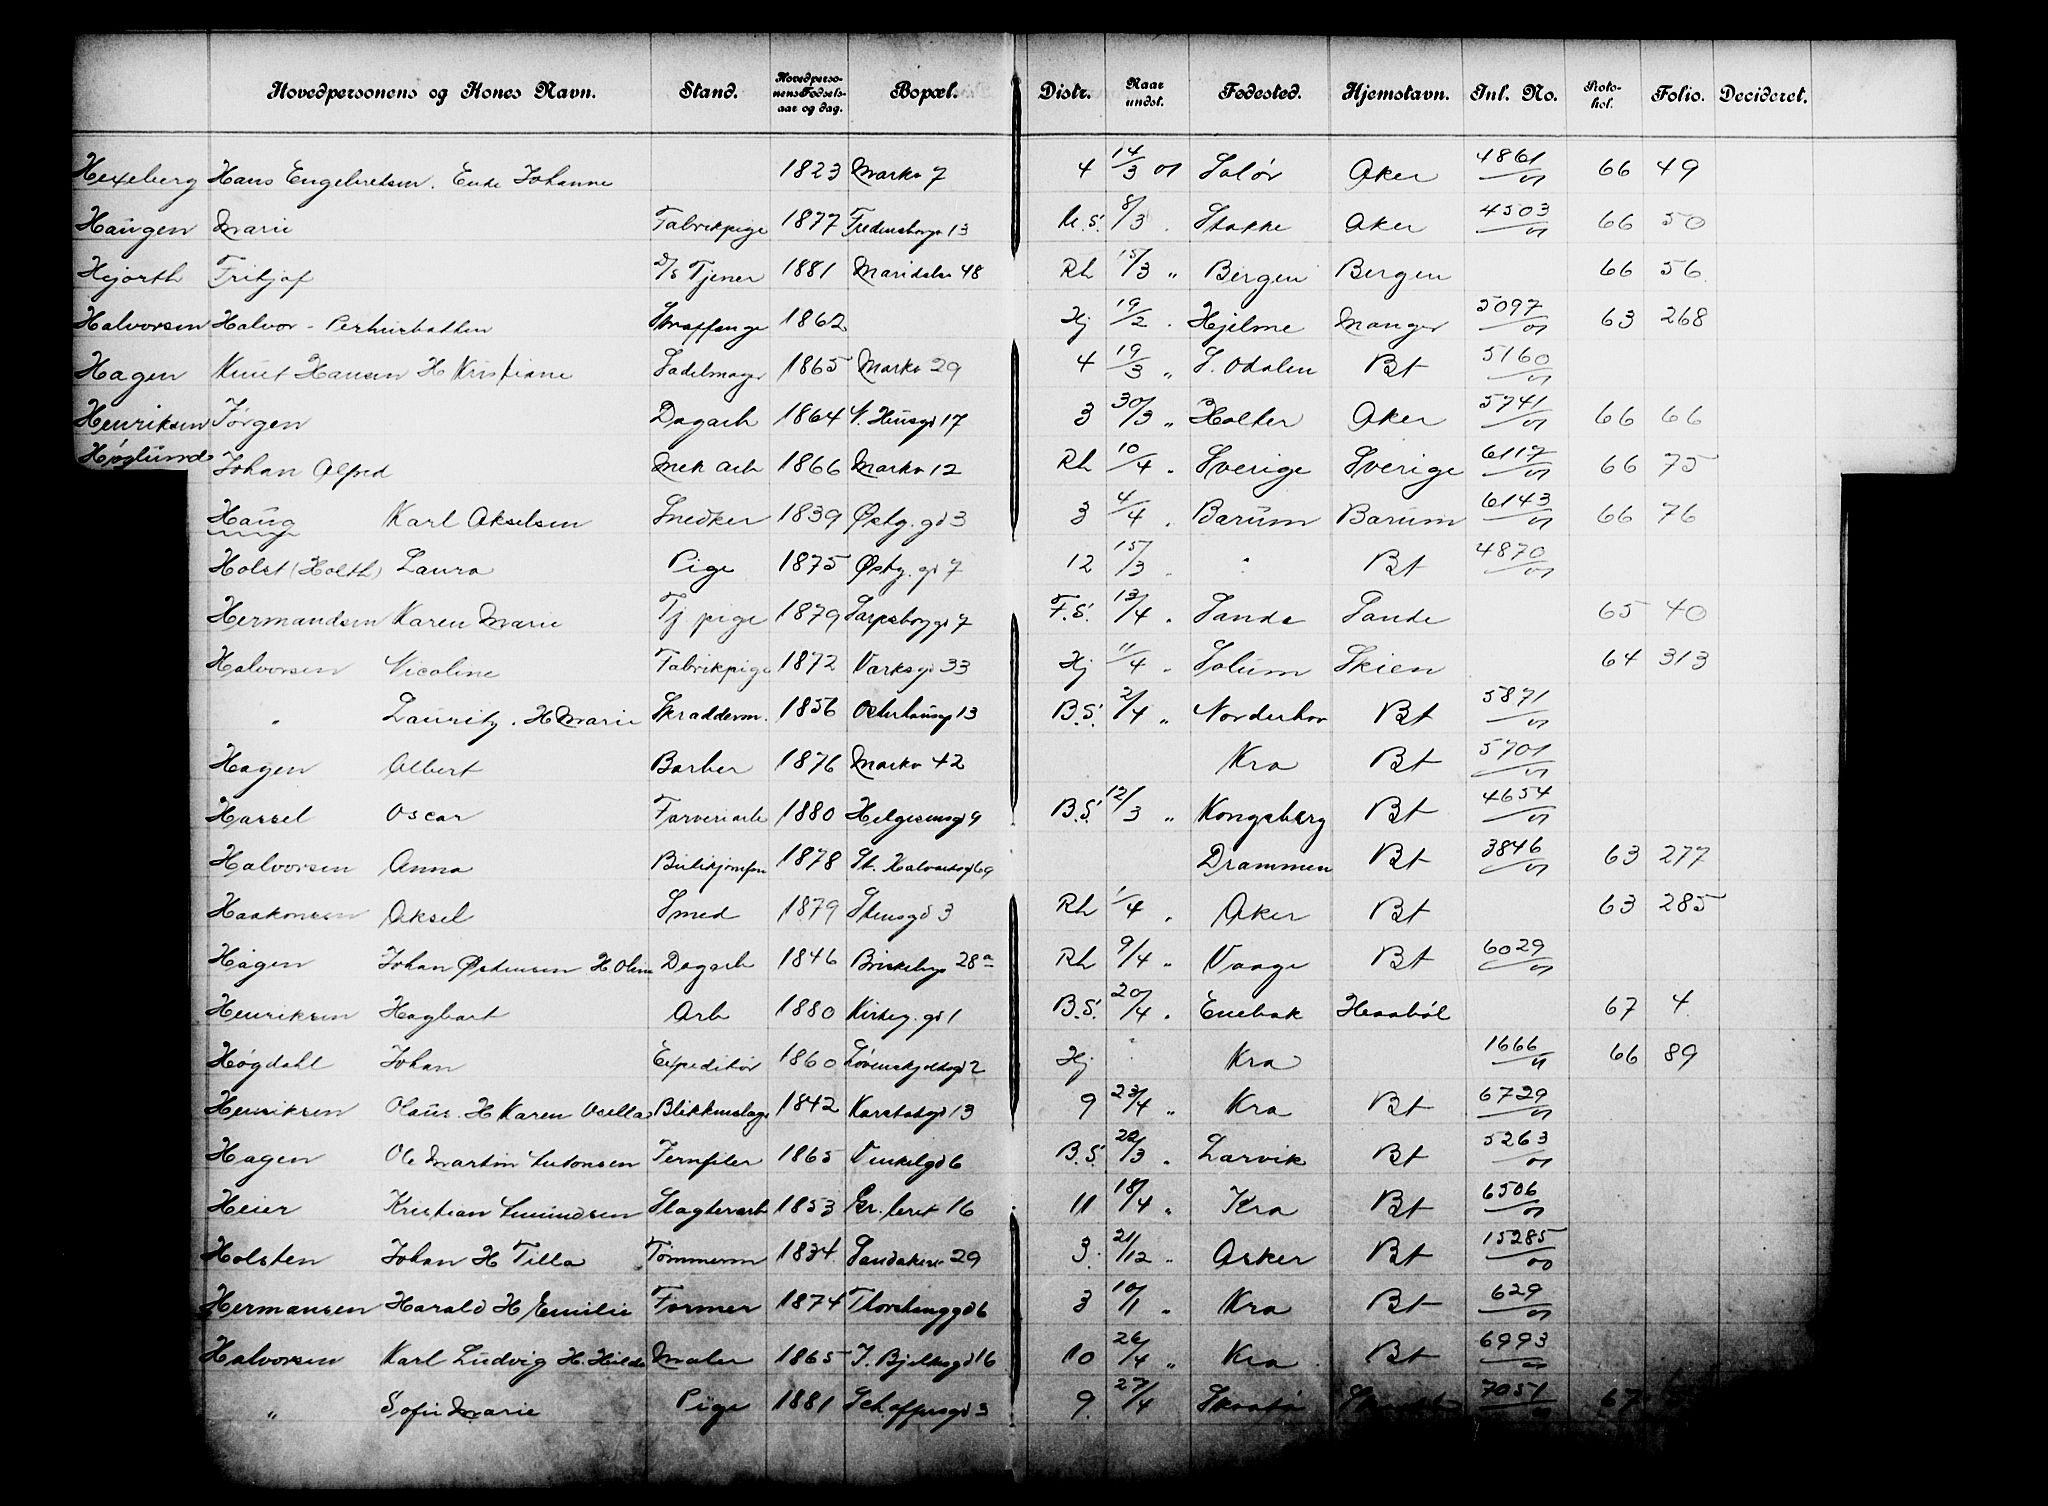 Hovedpersonens og Kones Navn. Stand. Hovedpersonens Fødselsaar og dag. Bopæl. Distr. Naar undst. Fødested. Hjemstavn. Inl. No. Protokol. Folio. Decideret.
Hexeberg Hans Engebretsen. Enke Johanne 1823 Markv 7 4 14/3 01 Solør Aker 4861/01 66 49
Haugen Marie Fabrikpige 1877 Fredensborgv 13 U.S. 8/3 Stokke Aker 4503/01 66 50
Hejorth Fritjof D/s Tjener 1881 Maridalsv 48 Rh 15/3 " Bergen Bergen 66 56
Halvorsen Halvor - Straffange 1862 Hj 19/2 . Hjelme Manger 5097/01 63 268
Hagen Knut Hansen H Kristiane Sadelmager 1865 Markv 29 4 19/3 " S. Odalen Bt 5160/01
Henriksen Jørgen Dagarb 1864 N. Husgd 17 3 30/3 " Holter Aker 5741/01 66 66
Høglund Johan Alfred Mek arb 1866 Markv 12 Rh 10/4 " Sverige Sverige 6117/01 66 75
Haug Karl Akselsen Snedker 1839 Østg. gd 3 3 4/4 . Barum Barum 6143/01 66 76
Holst (Holth) Laura Pige 1875 Østg. gd 7 12 15/3 . " Bt 4870/01
Hermandsen Karen Marie Tj. pige 1879 Sarpsborggd 7 F.S. 13/4 . Sande Sande 65 40
Halvorsen Nicoline Fabrikpige 1872 Varksgd 33 Hj 11/4 . Solum Skien 64 313
" Lauritz. H Marie Skradderm. 1856 Osterhausg 13 B.S. 2/4 " Norderhov Bt 5871/01
Hagen Albert Barber 1876 Markv 42 Kra Bt 5701/01
Hassel Oscar Farveriarb 1880 Helgesensgd 9 B.S. 12/3 " Kongsberg Bt 4654/01
Halvorsen Anna Butikjomfru 1878 St. Halvardsgd 69 Drammen Bt 3846/01 63 277
Haakonsen Aksel Smed 1879 Stensgd 3 Rh 1/4 . Aker Bt 63 285
Hagen Johan Østensen H Oline Dagarb 1846 Briskebyv 28a Rh 9/4 " Vaage Bt 6029/01
Henriksen Hagbart Arb 1880 Kirkeg. gd 1 B.S. 20/4 . Enebak Haabøl 67 4
Høgdahl Johan Expeditør 1860 Løvenskjoldsgd 2 Hj " Kra 1666/01 66 89
Henriksen Olaus. H Karen Blikkenslager 1842 Karstadgd 13 9 23/4 " Kra Bt 6729/01
Hagen Ole Martin Antonsen Jernfiler 1865 Vinkelgd 6 B.S. 22/3 . Larvik Bt 5263/01
Heier Kristian Amundsen Slagterarb 1853 Gr. leret 16 11 18/4 " Kra Bt 6506/01
Holsten Johan H Tilla Tømmerm 1834 Sandakerv 29 3 21/12 " Asker Bt 15285/00
Hermansen Harald H Emilie Former 1874 Thorshauggd 6 3 10/1 " Kra Bt 629/01
Halvorsen Karl Ludvig H. Hilda Maler 1865 J. Bjelkesgd 16 10 26/4 " Kra Bt 6993/01
" Sofie Marie Pige 1881 Schaffersgd 3 9 27/4 Skaatø 7051/01 67